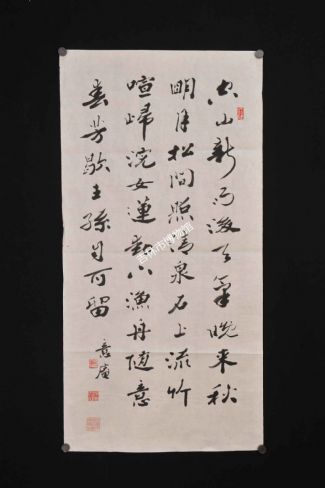 空山新雨後天氣晚來秋
明月松間照清泉石上流竹
喧歸浣女蓮動下漁舟隨意
春芳歇王孫自可留
吉林市博物馆